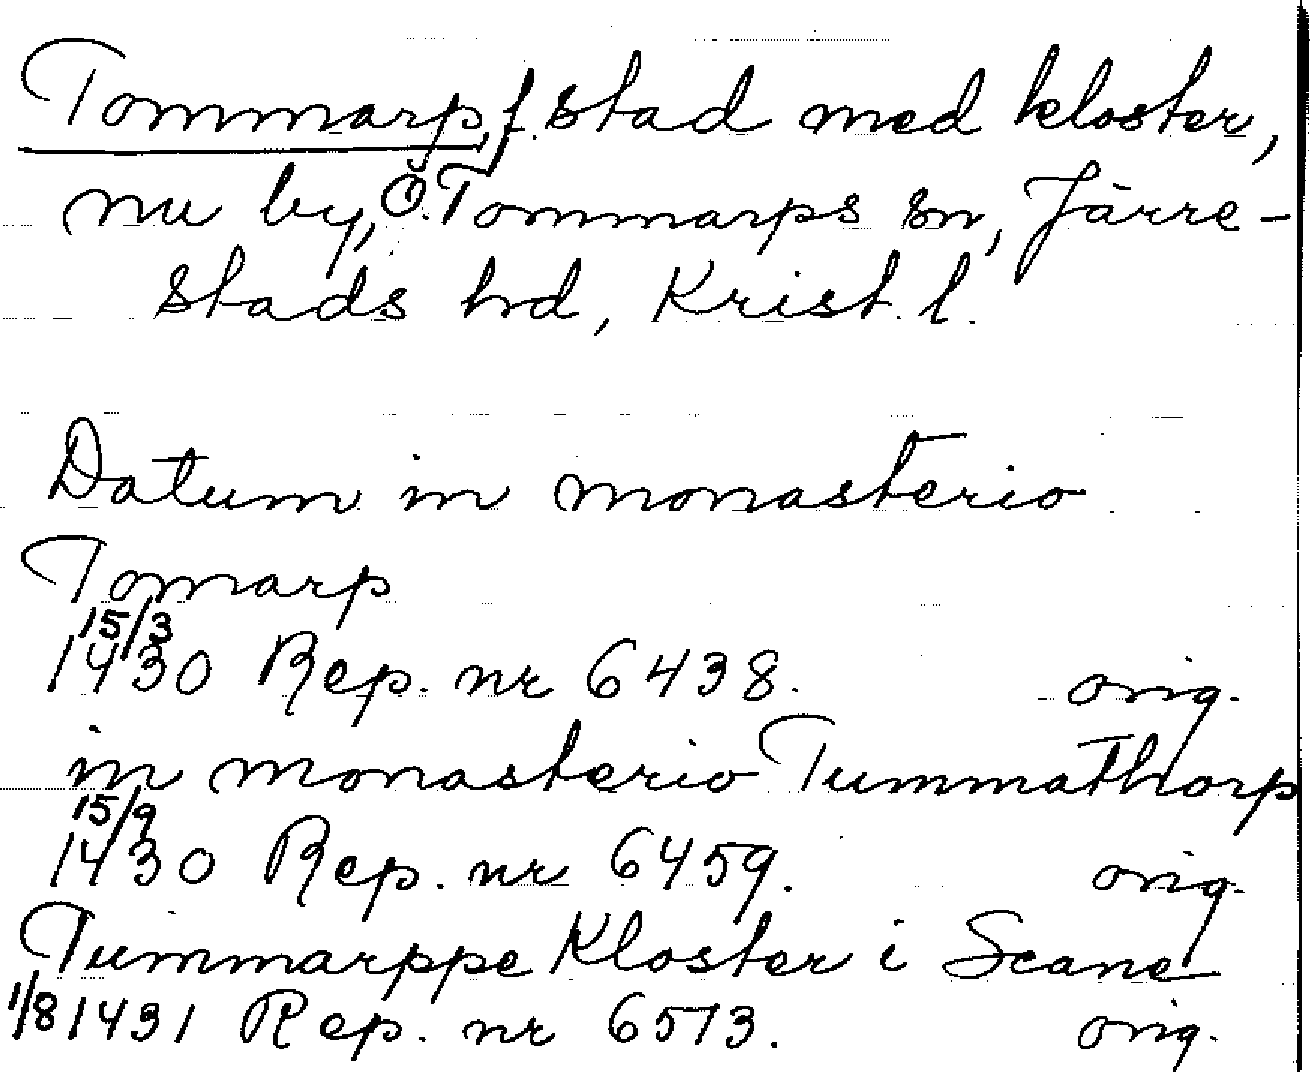 Tommarp, f. stad med kloster,
nu by, Ö. Tommarps sn, Järre-
stads hd, Krist. l.
Datum in monasterio
Tomarp
15/3
1430 Rep. nr 6438. orig.
in monasterio Tummathorp
15/9
1430 Rep. nr 6459. orig.
Tummarppe Kloster i Scane
1/8 1431 Rep. nr 6513. orig.